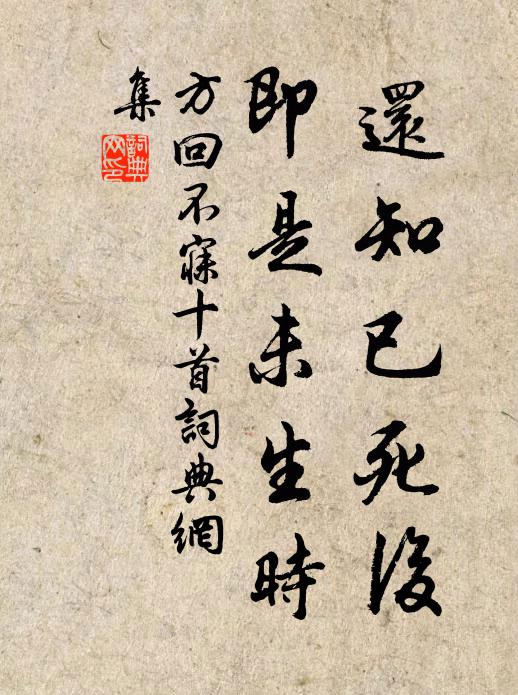 還知已死後
即是未生時
方回不寐十首詞典網
集
詞典
网印